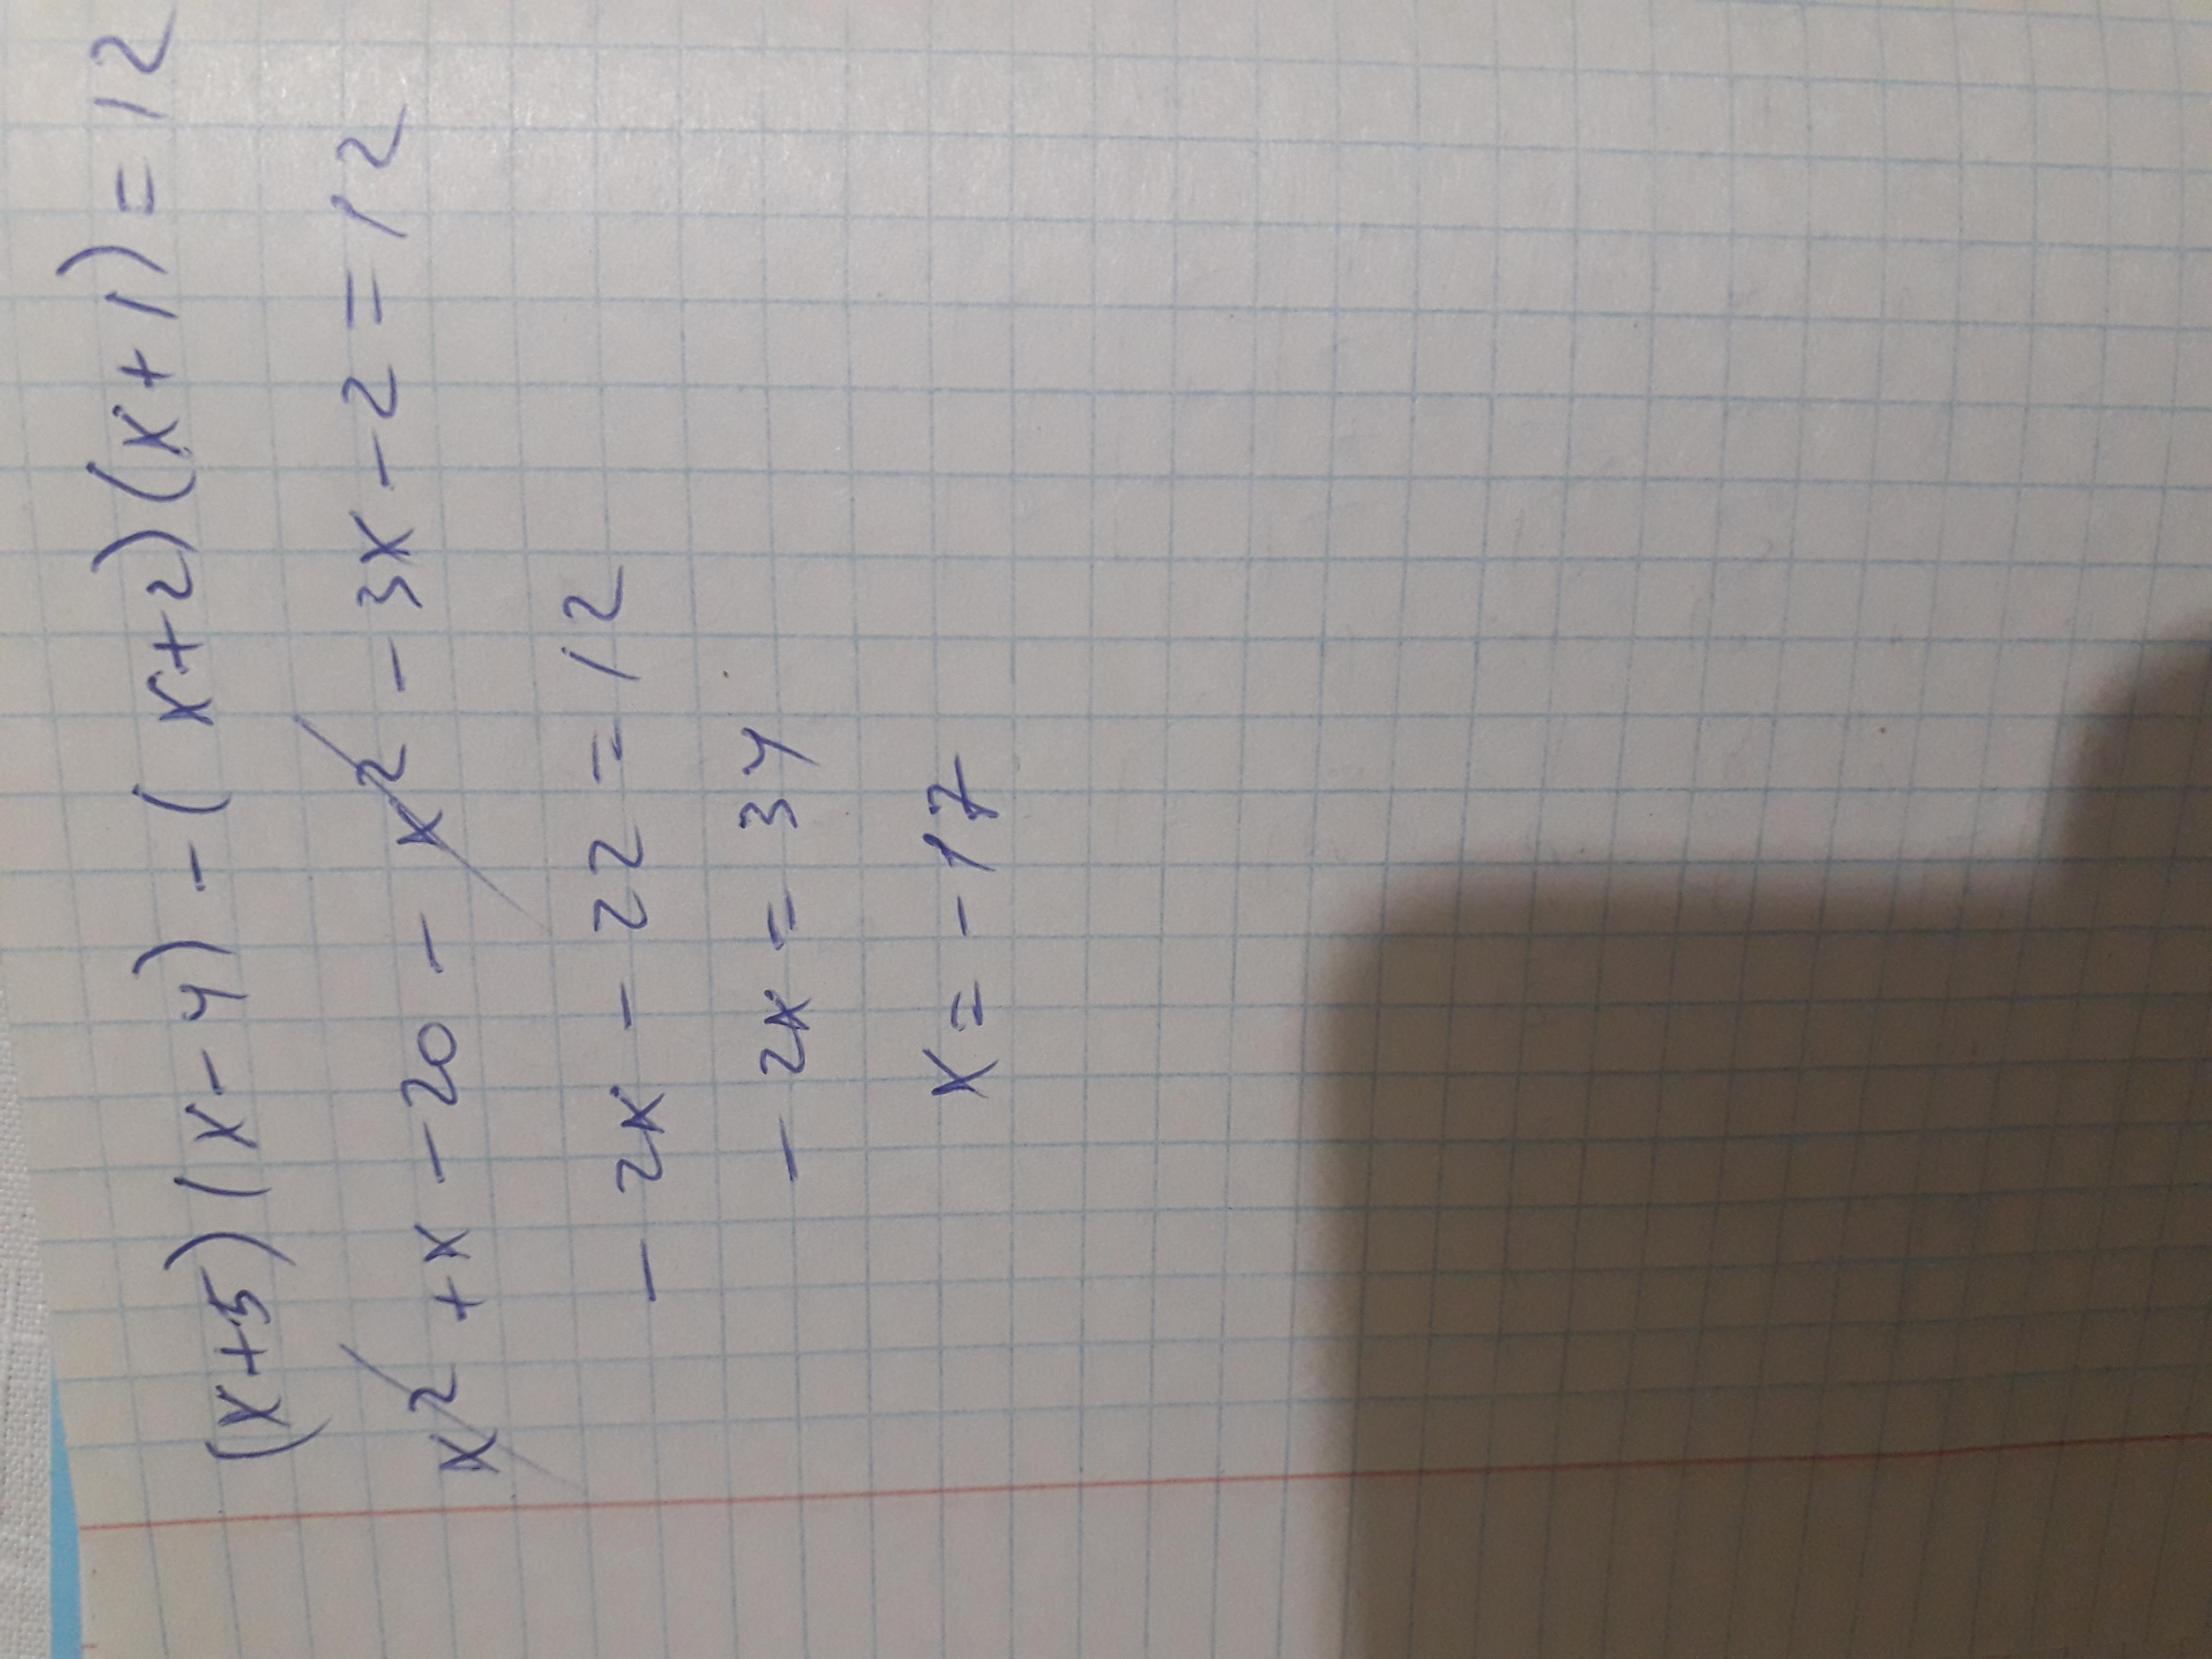 (x+5)(x-4)-(x+2)(x+1)=12
x²+x-20-x²-3x-2=12
-2x-22=12
-2x=34
x=-17